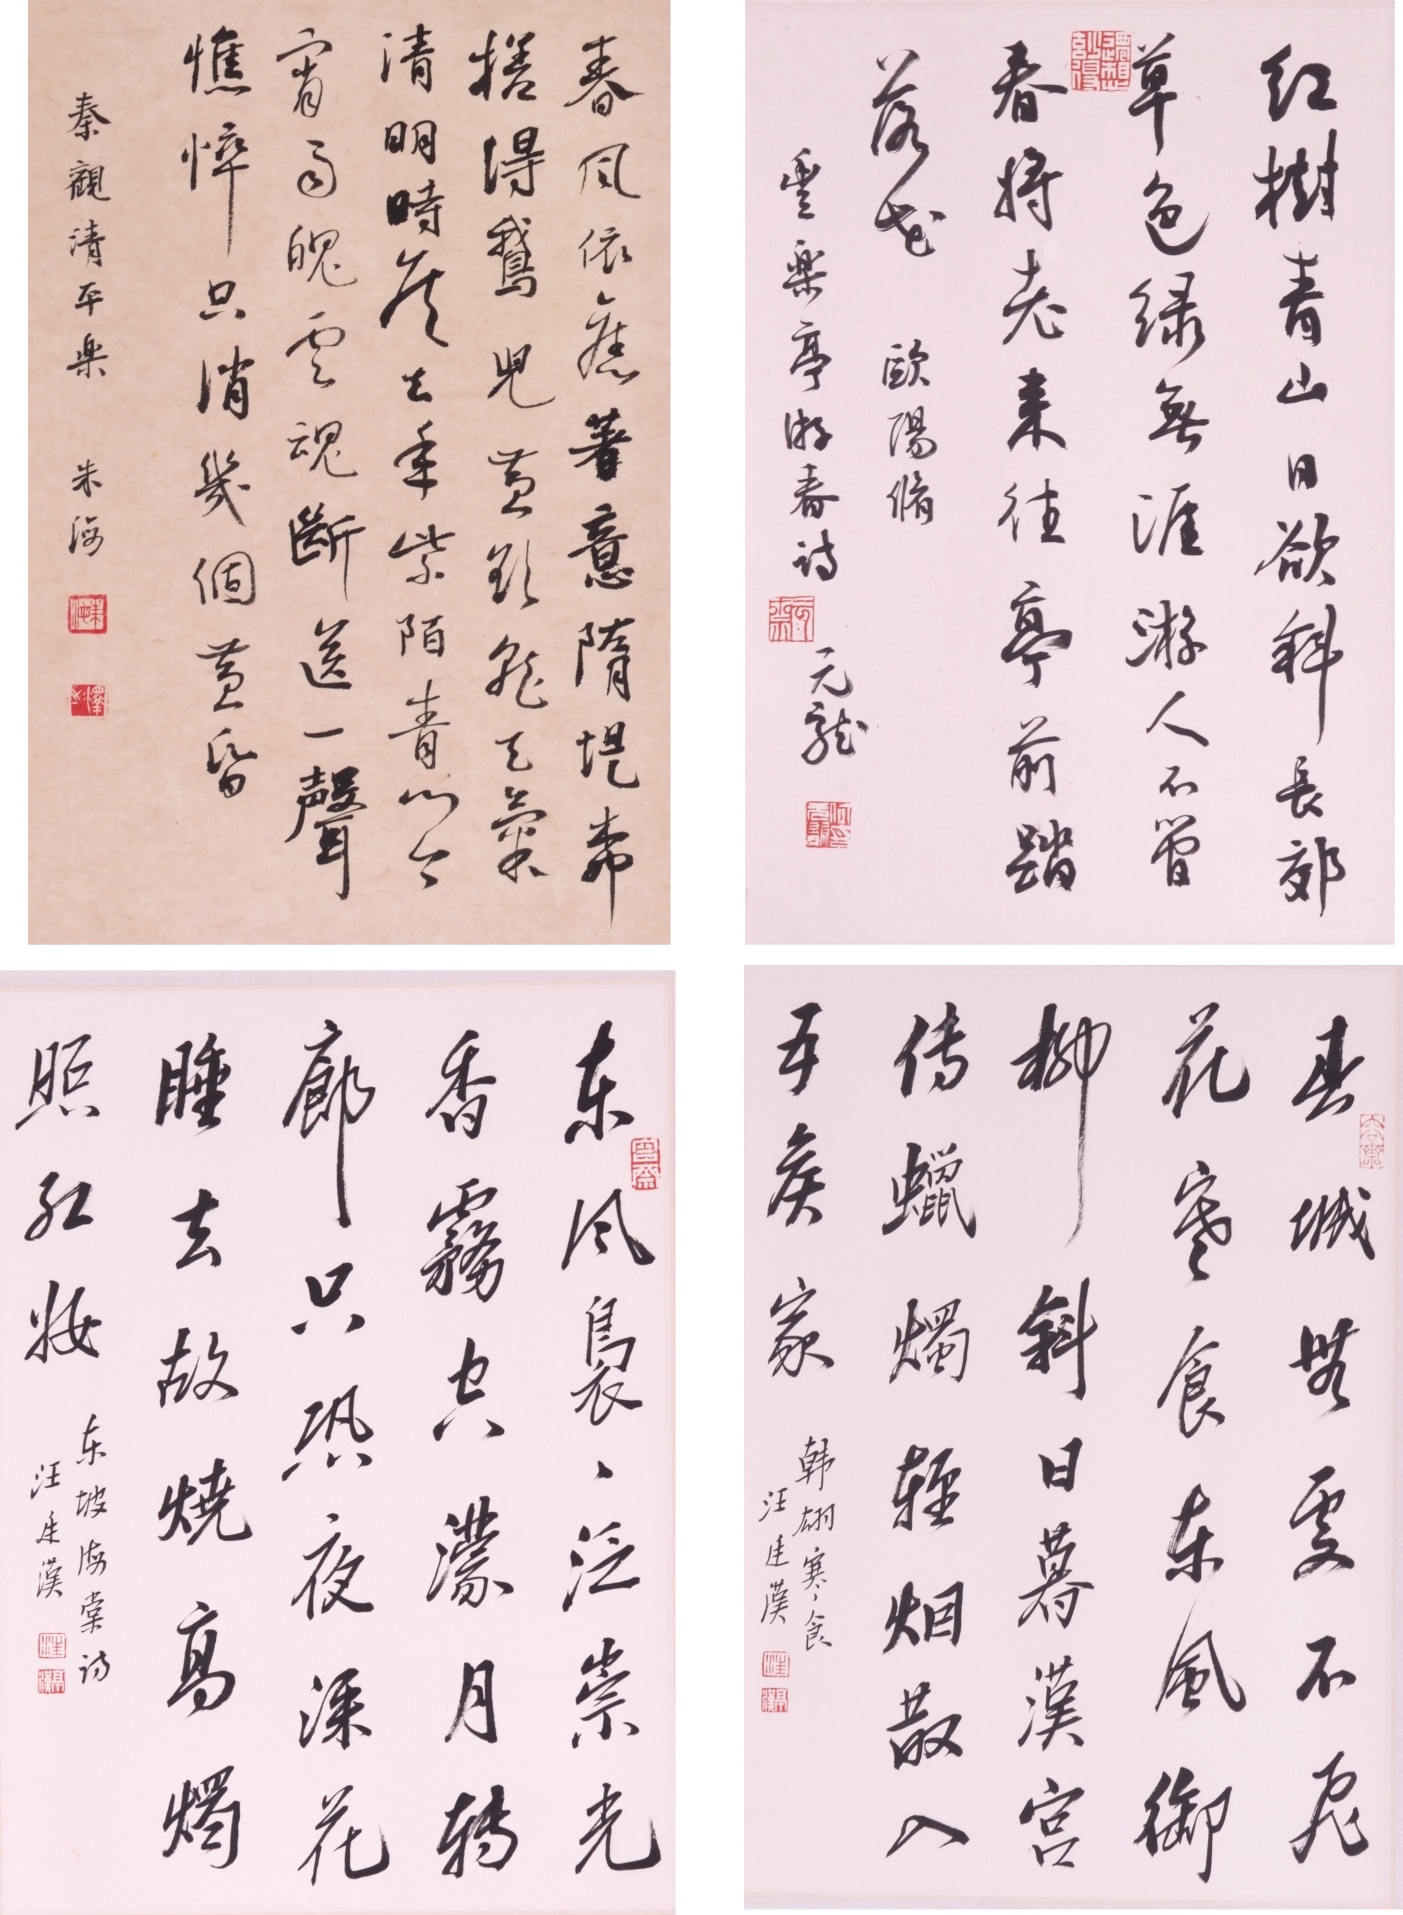 春風依舊著意隋堤柳
搓得鵝兒黃欲就天氣
清明時候去年紫陌青門今
宵雨魄雲魂斷送一聲
憔悴只消幾個黃昏
秦觀清平樂 朱海
红樹青山日欲斜長郊
草色緑無涯游人不管
春將老来往亭前踏
落花 歐陽脩
豐樂亭游春詩 元龍
东风裊々泛崇光
香霧空濛月转
廊只恐夜深花
睡去故燒高燭
照红妝
东坡海棠诗
汪廷漢
春城無處不飛
花寒食东風御
柳斜日暮漢宫
传蠟燭輕烟散入
五侯家
韩翃寒食
汪廷漢